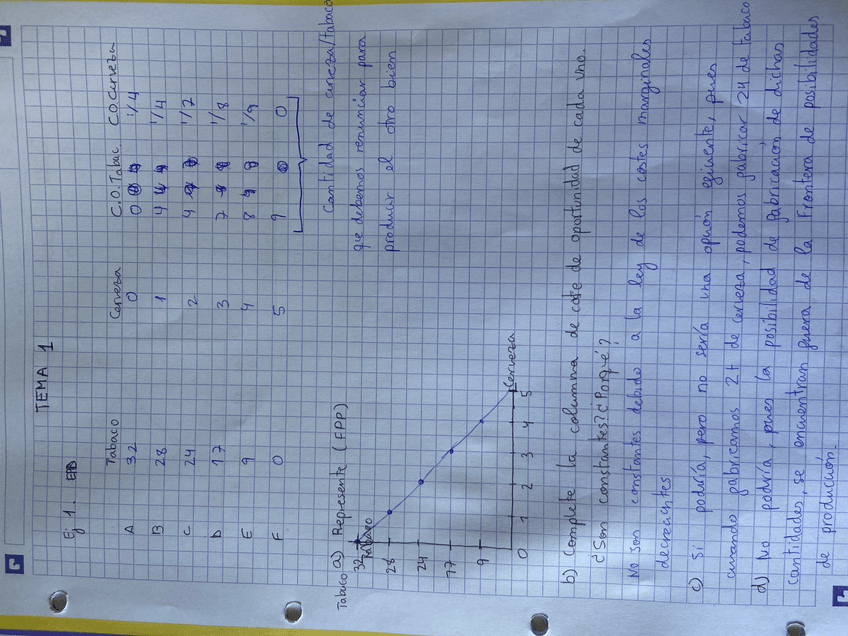 TEMA 1
Ej 1.
Tabaco Cerveza C.O.Tabac C.O.Cerveza
A 32 0 0 1/4
B 28 1 4 1/4
C 24 2 4 1/7
D 17 3 7 1/8
E 9 4 8 1/9
F 0 5 9 0
Cantidad de cerveza/tabaco
que debemos renunciar para
producir el otro bien
a) Represente (FPP)
Tabaco
Tabaco
32
28
24
17
9
0 1 2 3 4 5
Cerveza
b) Complete la columna de coste de oportunidad de cada uno.
¿Son constantes? ¿Porqué?
No son constantes debido a la ley de los costes marginales
decrecientes
c) Si podría, pero no sería una opción eficiente, pues
cuando fabricamos 2t de cerveza, podemos fabricar 24 de tabaco
d) No podría, pues la posibilidad de fabricación de dichas
cantidades, se encuentran fuera de la Frontera de posibilidades
de producción.